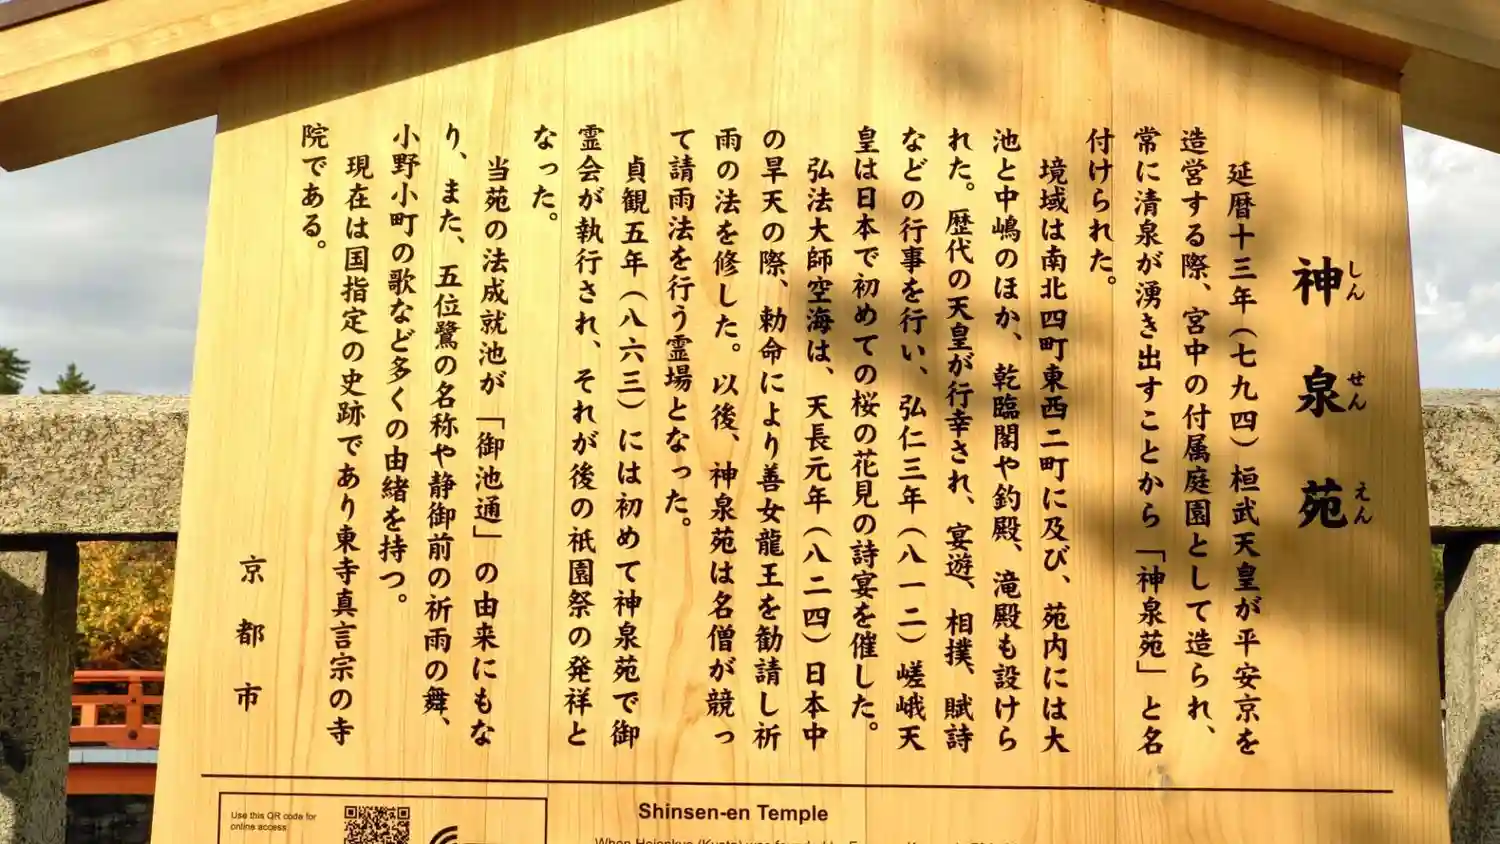 神泉苑
しんせんえん
延暦十三年（七九四）桓武天皇が平安京を
造営する際、宮中の付属庭園として造られ、
常に清泉が湧き出すことから「神泉苑」と名
付けられた。
境域は南北四町東西二町に及び、苑内には大
池と中嶋のほか、乾臨閣や釣殿、滝殿も設けら
れた。歴代の天皇が行幸され、宴遊、相撲、賦詩
などの行事を行い、弘仁三年（八一二）嵯峨天
皇は日本で初めての桜の花見の詩宴を催した。
弘法大師空海は、天長元年（八二四）日本中
の旱天の際、勅命により善女龍王を勧請し祈
雨の法を修した。以後、神泉苑は名僧が競っ
て請雨法を行う霊場となった。
貞観五年（八六三）には初めて神泉苑で御
霊会が執行され、それが後の祇園祭の発祥と
なった。
当苑の法成就池が「御池通」の由来にもな
り、また、五位鷺の名称や静御前の祈雨の舞、
小野小町の歌など多くの由緒を持つ。
現在は国指定の史跡であり東寺真言宗の寺
院である。
京都市
Use this QR code for
online access
Shinsen-en Temple